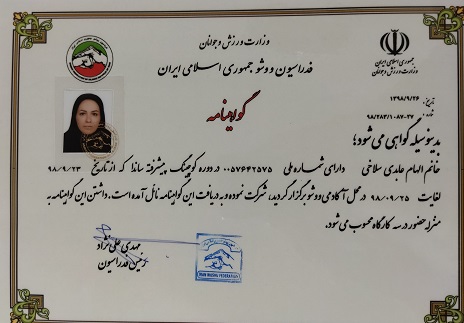 وزارت ورزش و جوانان
فدراسیون ووشو جمهوری اسلامی ایران
جمهوری اسلامی ایران
وزارت ورزش و جوانان
گواهینامه
تاریخ: ۱۳۹۸/۹/۲۶
۹۸/۲۸۳/۱۰۸۷-۳۷
بدینوسیله گواهی می شود؛
خانم الهام عابدی سلاخی دارای شماره ملی ۰۰۵۷۶۴۲۵۷۵ در دوره کوچینگ پیشرفته ساندا که از تاریخ ۹۸/۹/۲۳
لغایت ۹۸/۰۹/۲۵ در محل آکادمی ووشو برگزار گردید، شرکت نموده و به دریافت این گواهینامه نائل آمده است. داشتن این گواهینامه به
منزله حضور در سه کارگاه محسوب می شود.
مهدی علی نژاد
رئیس فدراسیون
IRAN WUSHU FEDERATION